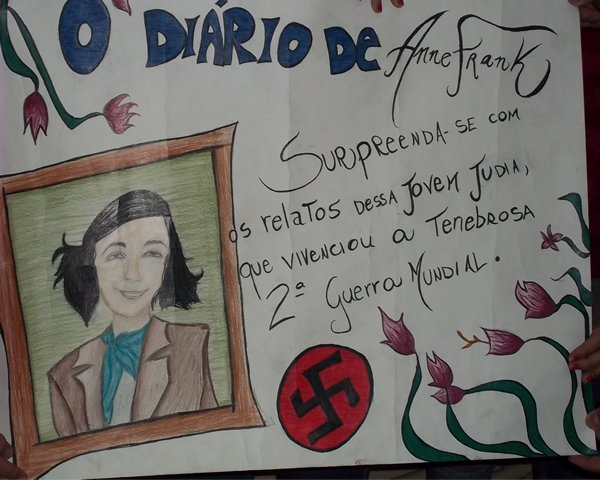 O DIÁRIO DE Anne Frank
SURPREENDA-SE COM
os relatos dessa Jovem Judia,
que vivenciou a Tenebrosa
2ª Guerra Mundial.